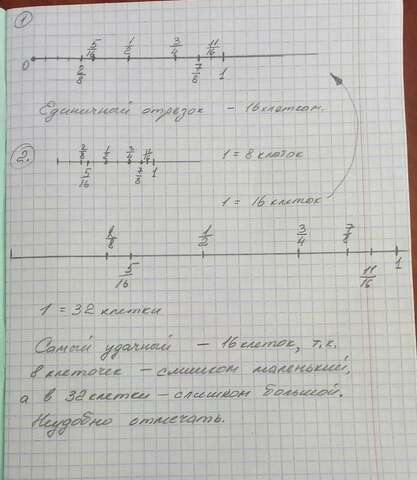 1
5/16 1/2 3/4 11/16
0 2/8 7/8 1
Единичный отрезок – 16 клеткам.
2. 2/8 1/2 3/4 11/16 1 = 8 клеток
5/16 7/8 1
1 = 16 клеток
1/2 3/4 7/8
5/16 11/16 1
1 = 32 клетки
Самый удачный – 16 клеток, т.к.
8 клеточек – слишком маленький,
а в 32 клетки – слишком большой.
Неудобно отмечать.